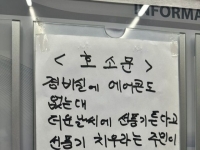 INFORMA
< 호 소 문 >
경비실에 에어콘도
없는대
더운날씨에 선풍기를튼다고
선풍기 치우라는 주민이